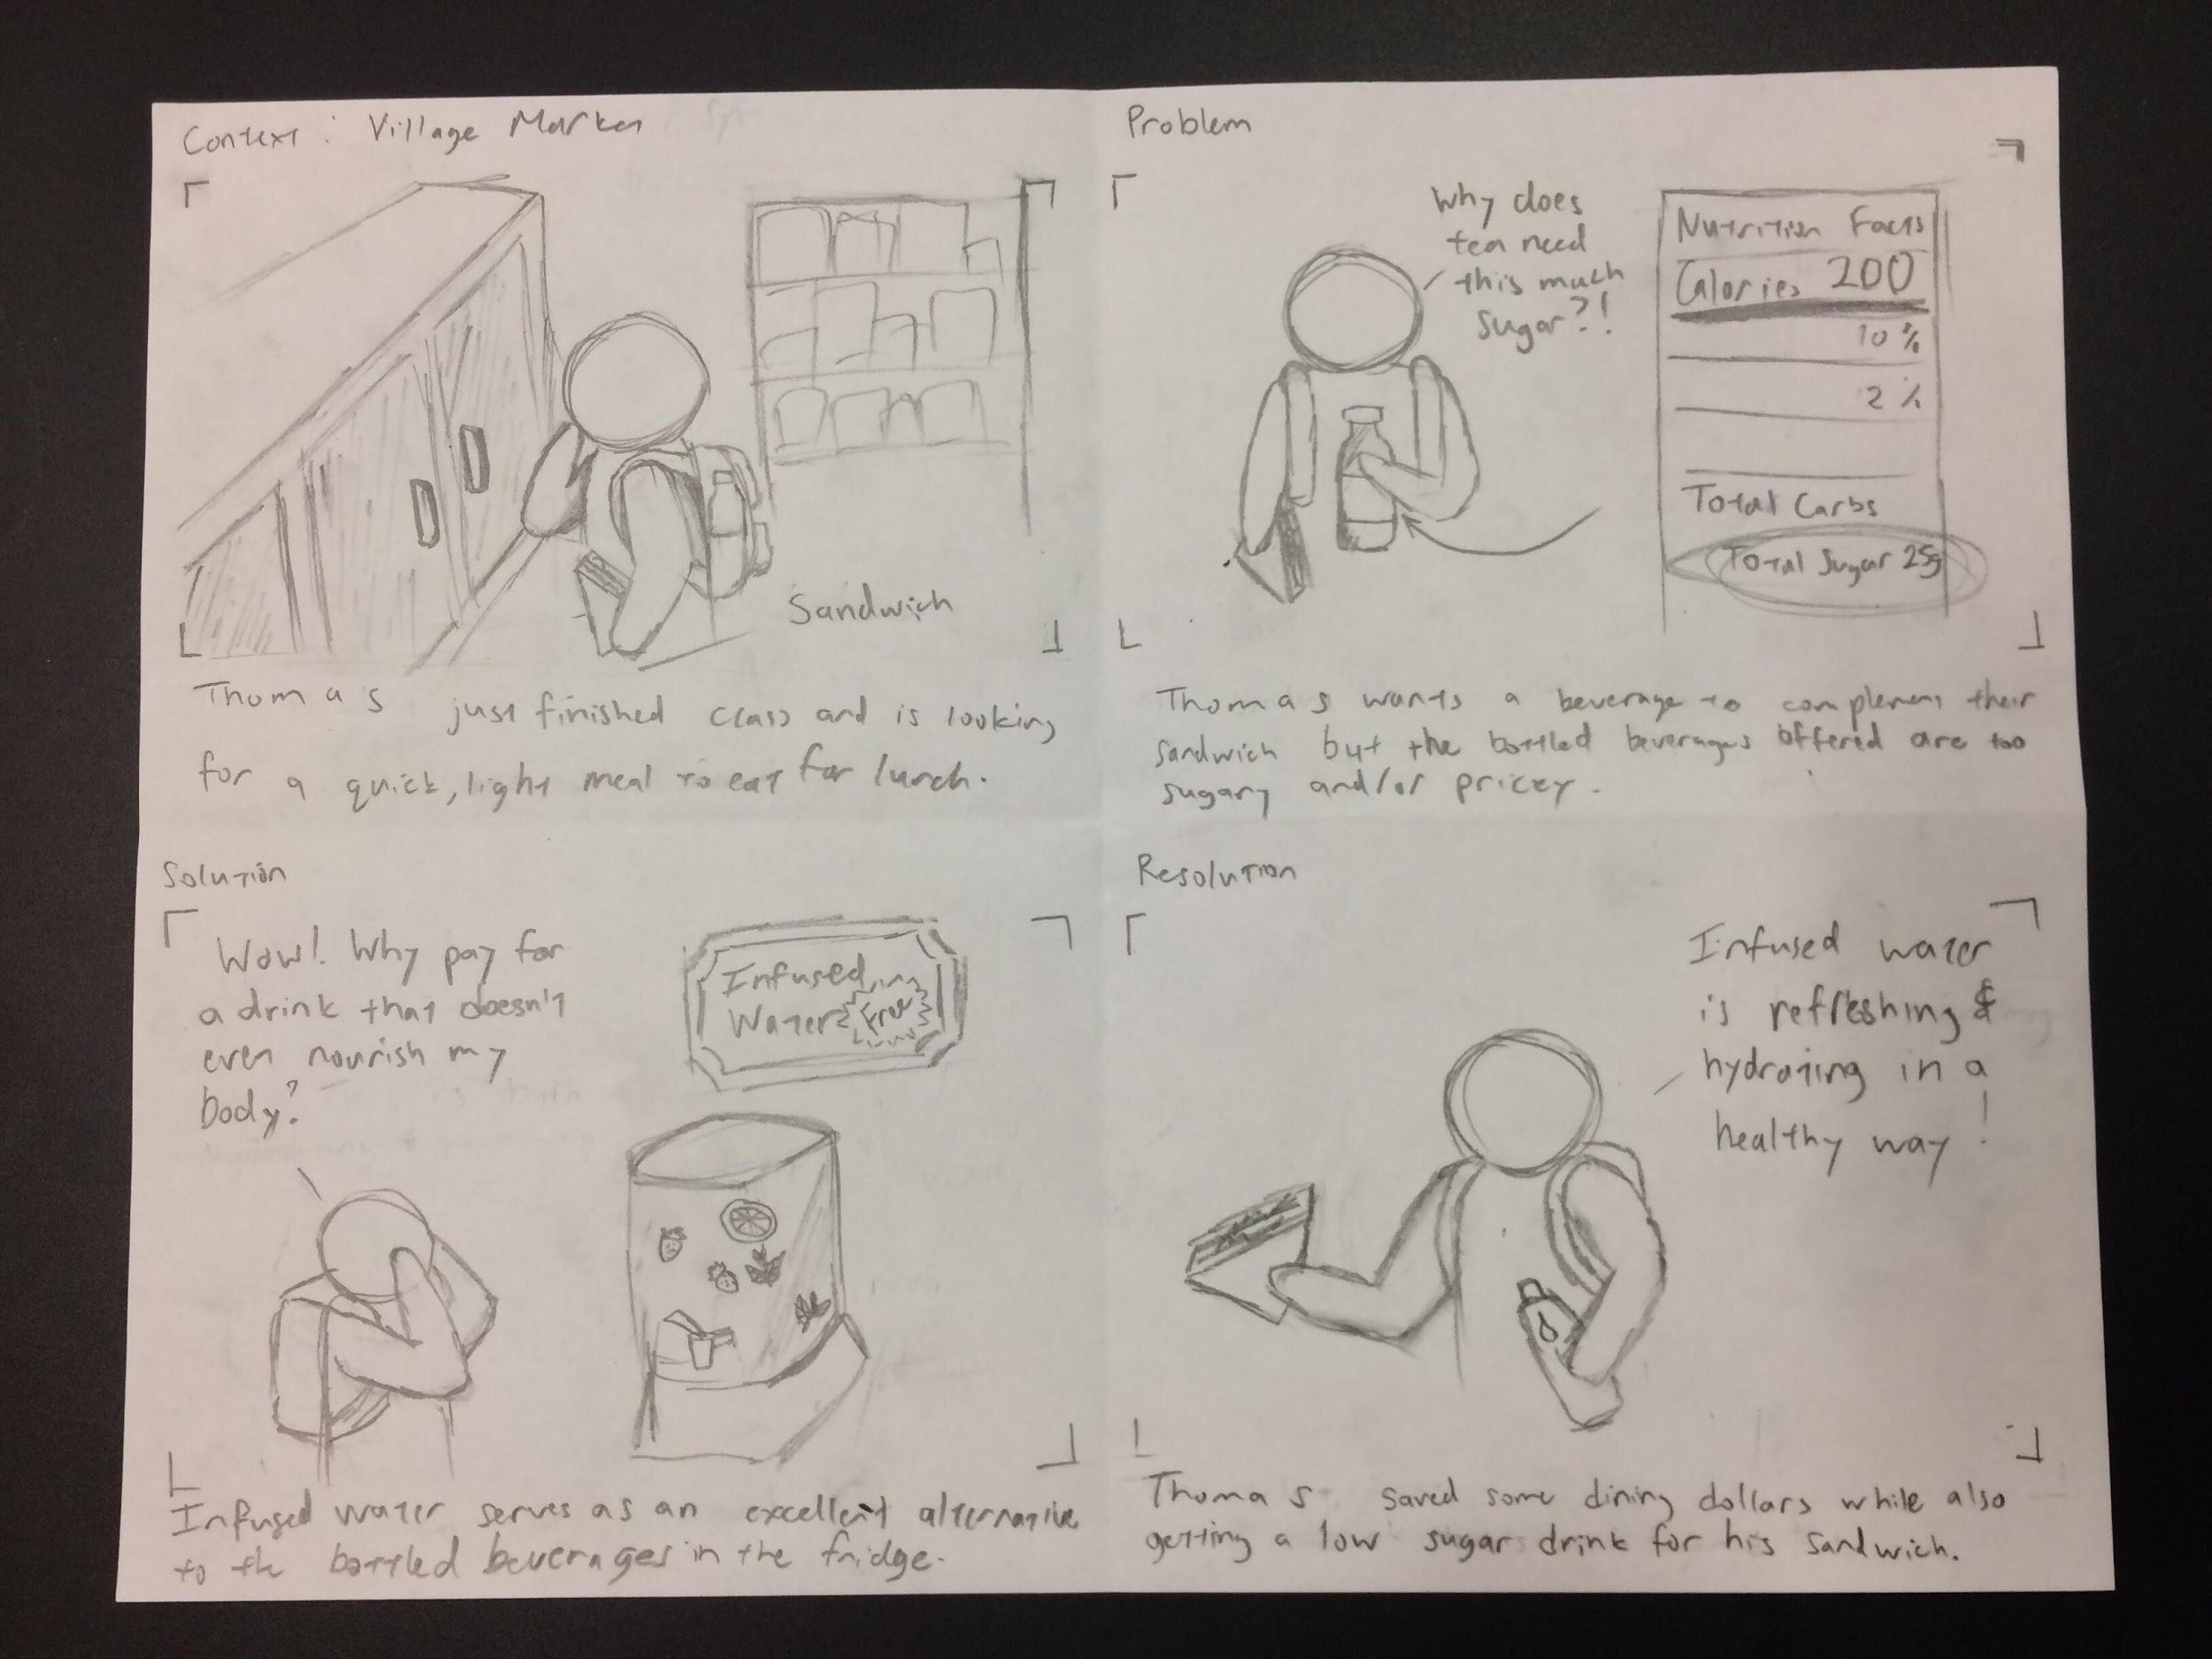 Context: Village Market
Sandwich
Thomas just finished class and is looking
for a quick, light meal to eat for lunch.
Problem
Why does
tea need
this much
sugar?!
Nutrition Facts
Calories 200
10%
2%
Total Carbs
Total Sugar 25g
Thomas wants a beverage to complement their
sandwich but the bottled beverages offered are too
sugary and/or pricey.
Solution
Wow! Why pay for
a drink that doesn't
even nourish my
body?
Infused
Water Free
Infused water serves as an excellent alternative
to the bottled beverages in the fridge.
Resolution
Infused water
is refreshing &
hydrating in a
healthy way!
Thomas saved some dining dollars while also
getting a low sugar drink for his sandwich.